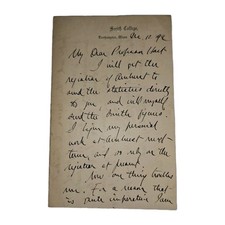 Smith College,
Northampton, Mass. Dec. 10. 92
My Dear Professor Hart
I will get the
registrar of Amherst to
send the statistics directly
to you, and will myself
send the Smith figures.
I begin my personal
work at Amherst next
term, and so rely on the
registrar at present.
One thing troubles
me. For a reason that
is quite imperative I am